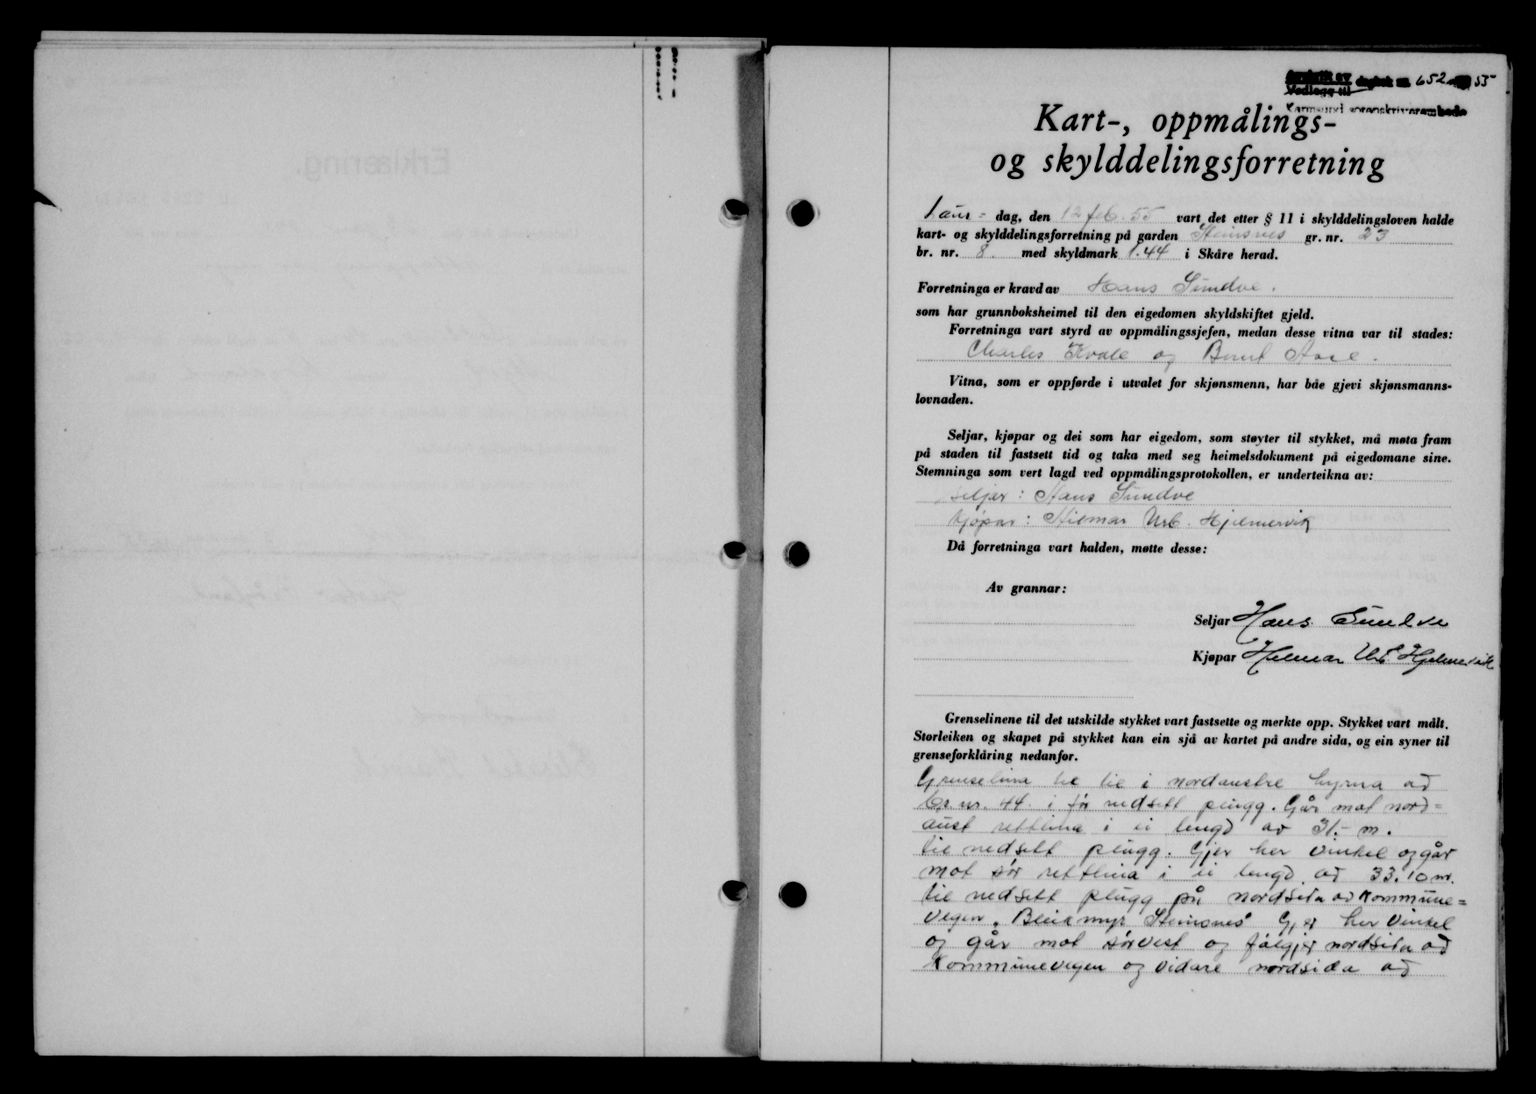 Avskrift av
Vedlegg til dagbok nr. 652 55
Karmsund sorenskriverembede
Kart-, oppmålings-
og skylddelingsforretning
Laur- dag, den 12 feb. 55 vart det etter § 11 i skylddelingsloven halde
kart- og skylddelingsforretning på garden Steinsnes gr. nr. 23
br. nr. 8 med skyldmark 1.44 i Skåre herad.
Forretninga er kravd av Hans Sundve.
som har grunnboksheimel til den eigedomen skyldskiftet gjeld.
Forretninga vart styrd av oppmålingssjefen, medan desse vitna var til stades:
Charles Kvale og Bernt Aase.
Vitna, som er oppførde i utvalet for skjønsmenn, har båe gjevi skjønsmanns-
lovnaden.
Seljar, kjøpar og dei som har eigedom, som støyter til stykket, må møta fram
på staden til fastsett tid og taka med seg heimelsdokument på eigedomane sine.
Stemninga som vert lagd ved oppmålingsprotokollen, er underteikna av:
seljar: Hans Sundve
kjøpar: Hilmar Urb. Hjelmervik
Då forretninga vart halden, møtte desse:
Av grannar:
Seljar Hans Sundve
Kjøpar Helmar Urb Hjelmervik
Grenselinene til det utskilde stykket vart fastsette og merkte opp. Stykket vart målt.
Storleiken og skapet på stykket kan ein sjå av kartet på andre sida, og ein syner til
grenseforklåring nedanfor.
Grenselina tek til i nordaustre hyrna av
br. nr. 44. i før nedsett plugg. Går mot nord-
aust rettlina i ei lengd av 31.- m.
til nedsett plugg. Gjer her vinkel og går
mot sør rettlina i ei lengd av 33.10 m.
til nedsett plugg på nordsida av Kommune-
vegen. Bleikmyr Steinsnes" Gjer her vinkel
og går mot sørvest og følgjer nordsida av
Kommunevegen og vidare nordsida av